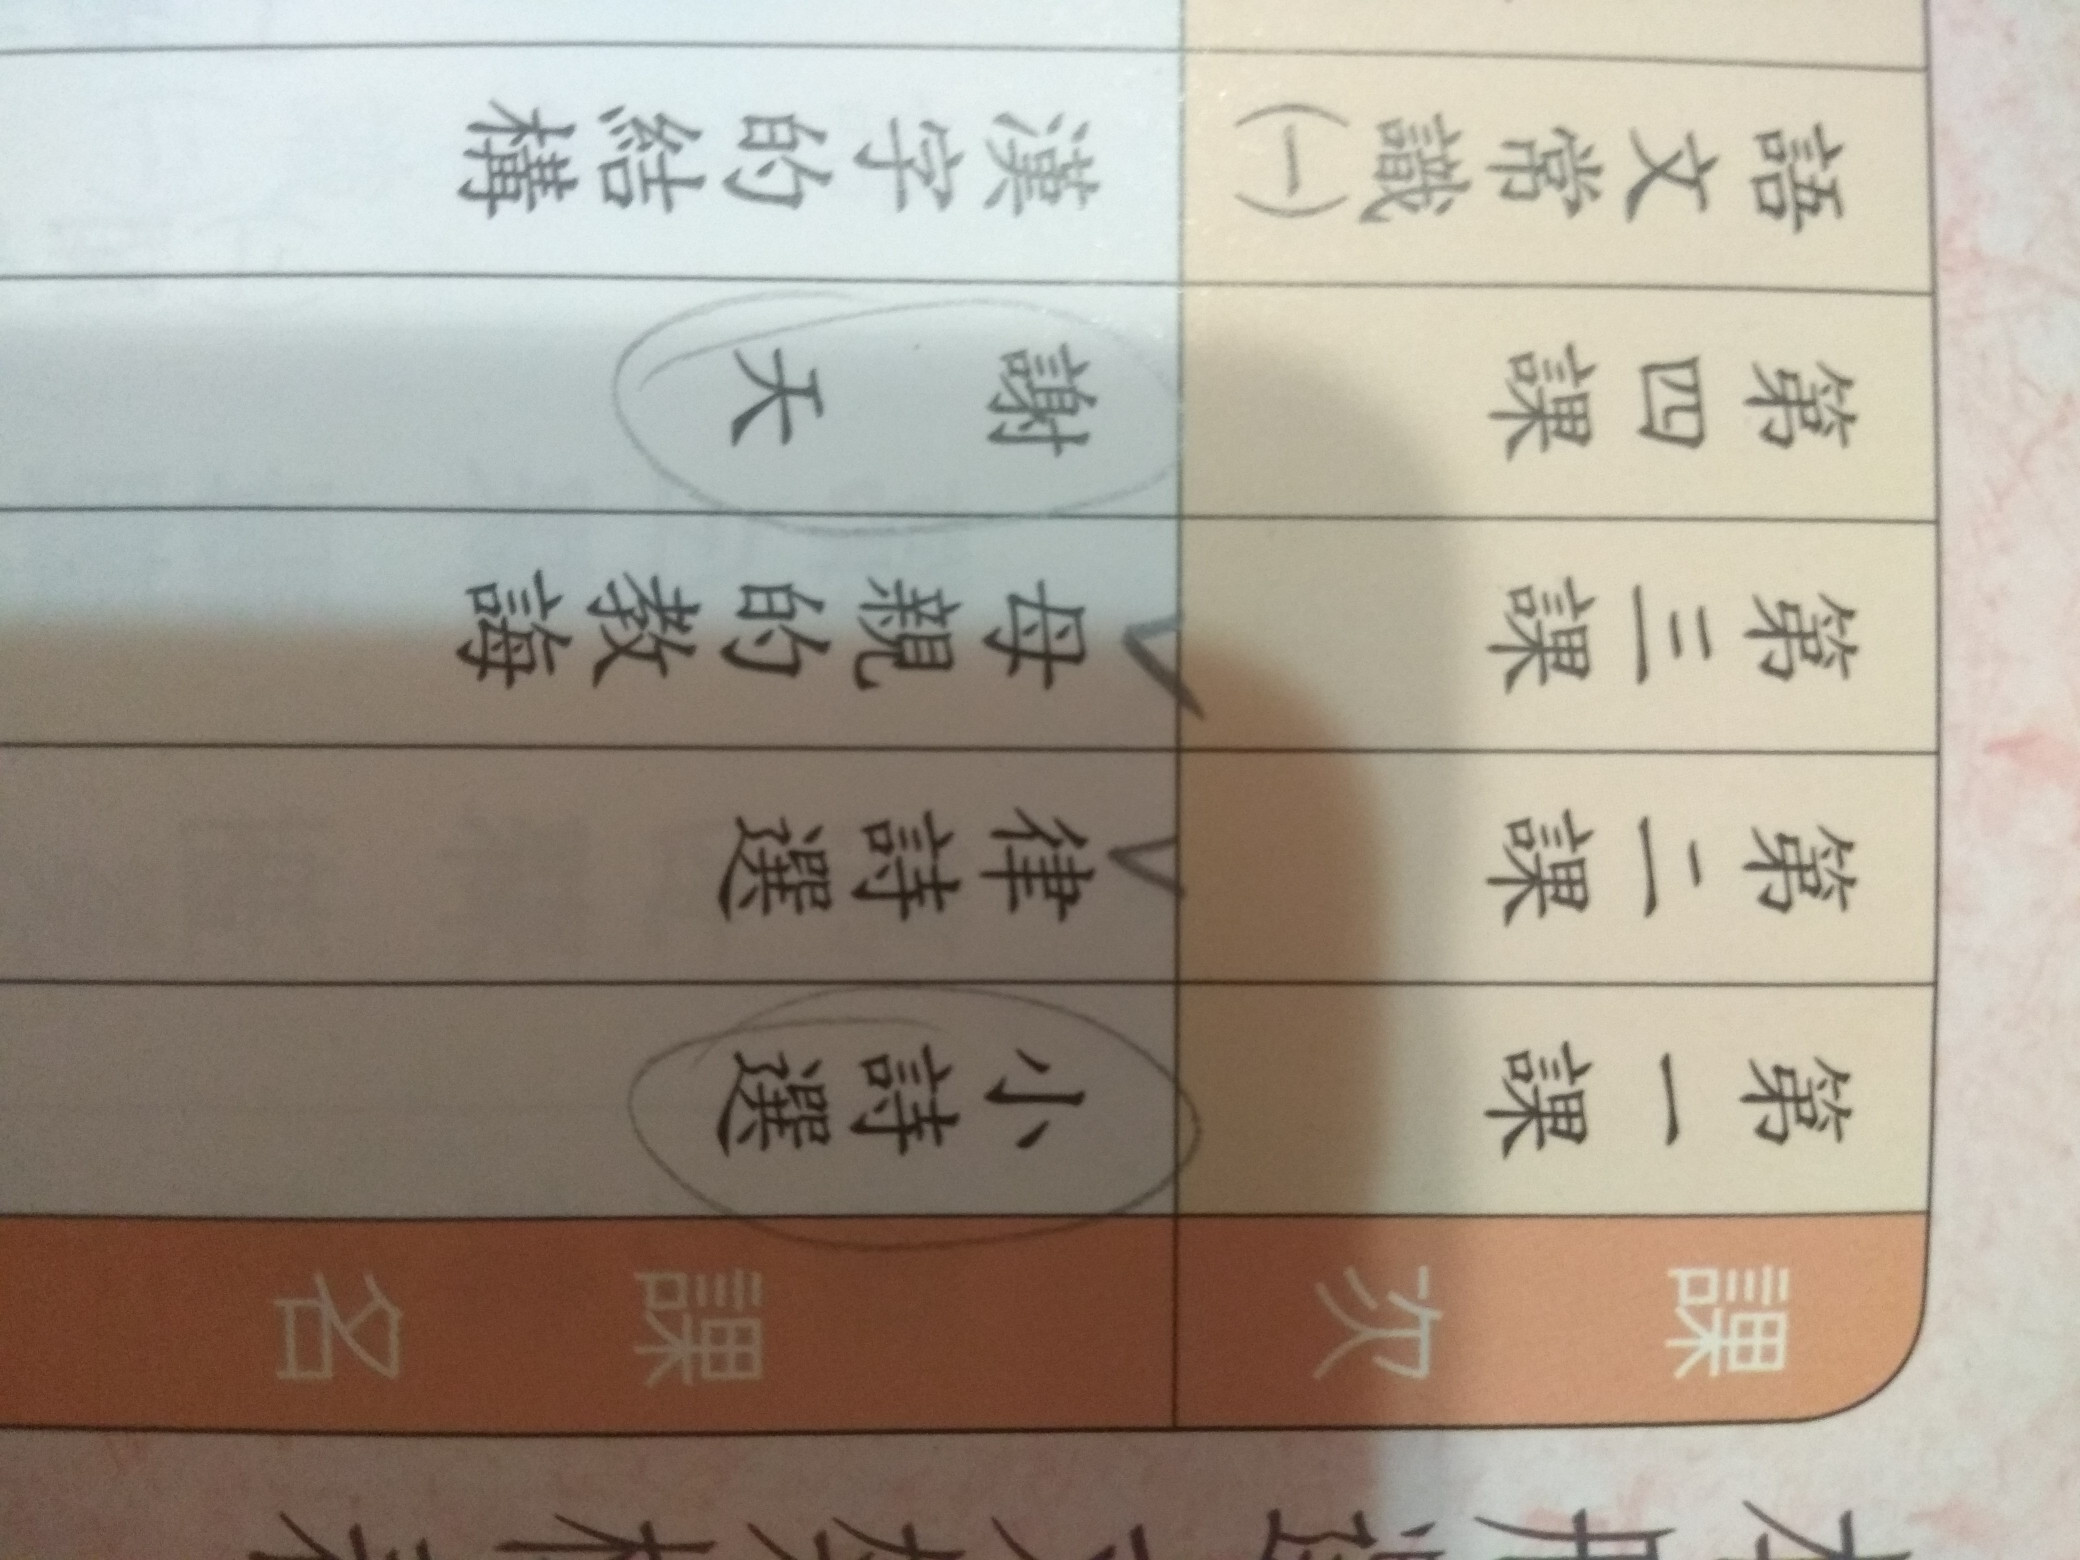 課次
課名
第一課
小詩選
第二課
律詩選
第三課
母親的教誨
第四課
謝天
語文常識(一)
漢字的結構